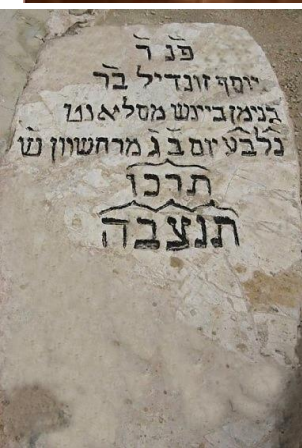 פ̅נ̅ ר̅
יוסף זונדיל ב̅ר̅
בנימן ביינש מסליאנט
נ̅ל̅ב̅ע̅ יום ב̅ ג̅ מרחשוון ש̅
תרכו
תנצבה